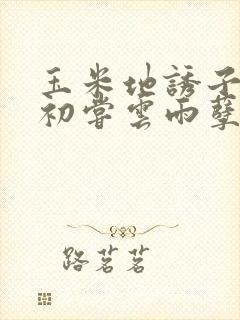 玉米地誘子
初嘗雲雨孽
路茗茗